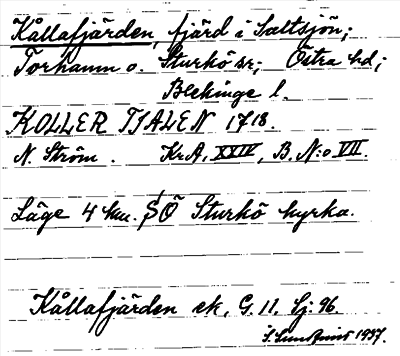 Kållafjärden, fjärd i Saltsjön;
Torhamn o. Sturkö sr; Östra hd;
Blekinge l.
KOLLER FJALEN 1718.
N. Ström. KrA, XXIV, B. N:o VII.
Läge 4 km. SÖ Sturkö kyrka.
Kållafjärden ek. G. 11. Lj. 96.
1937.